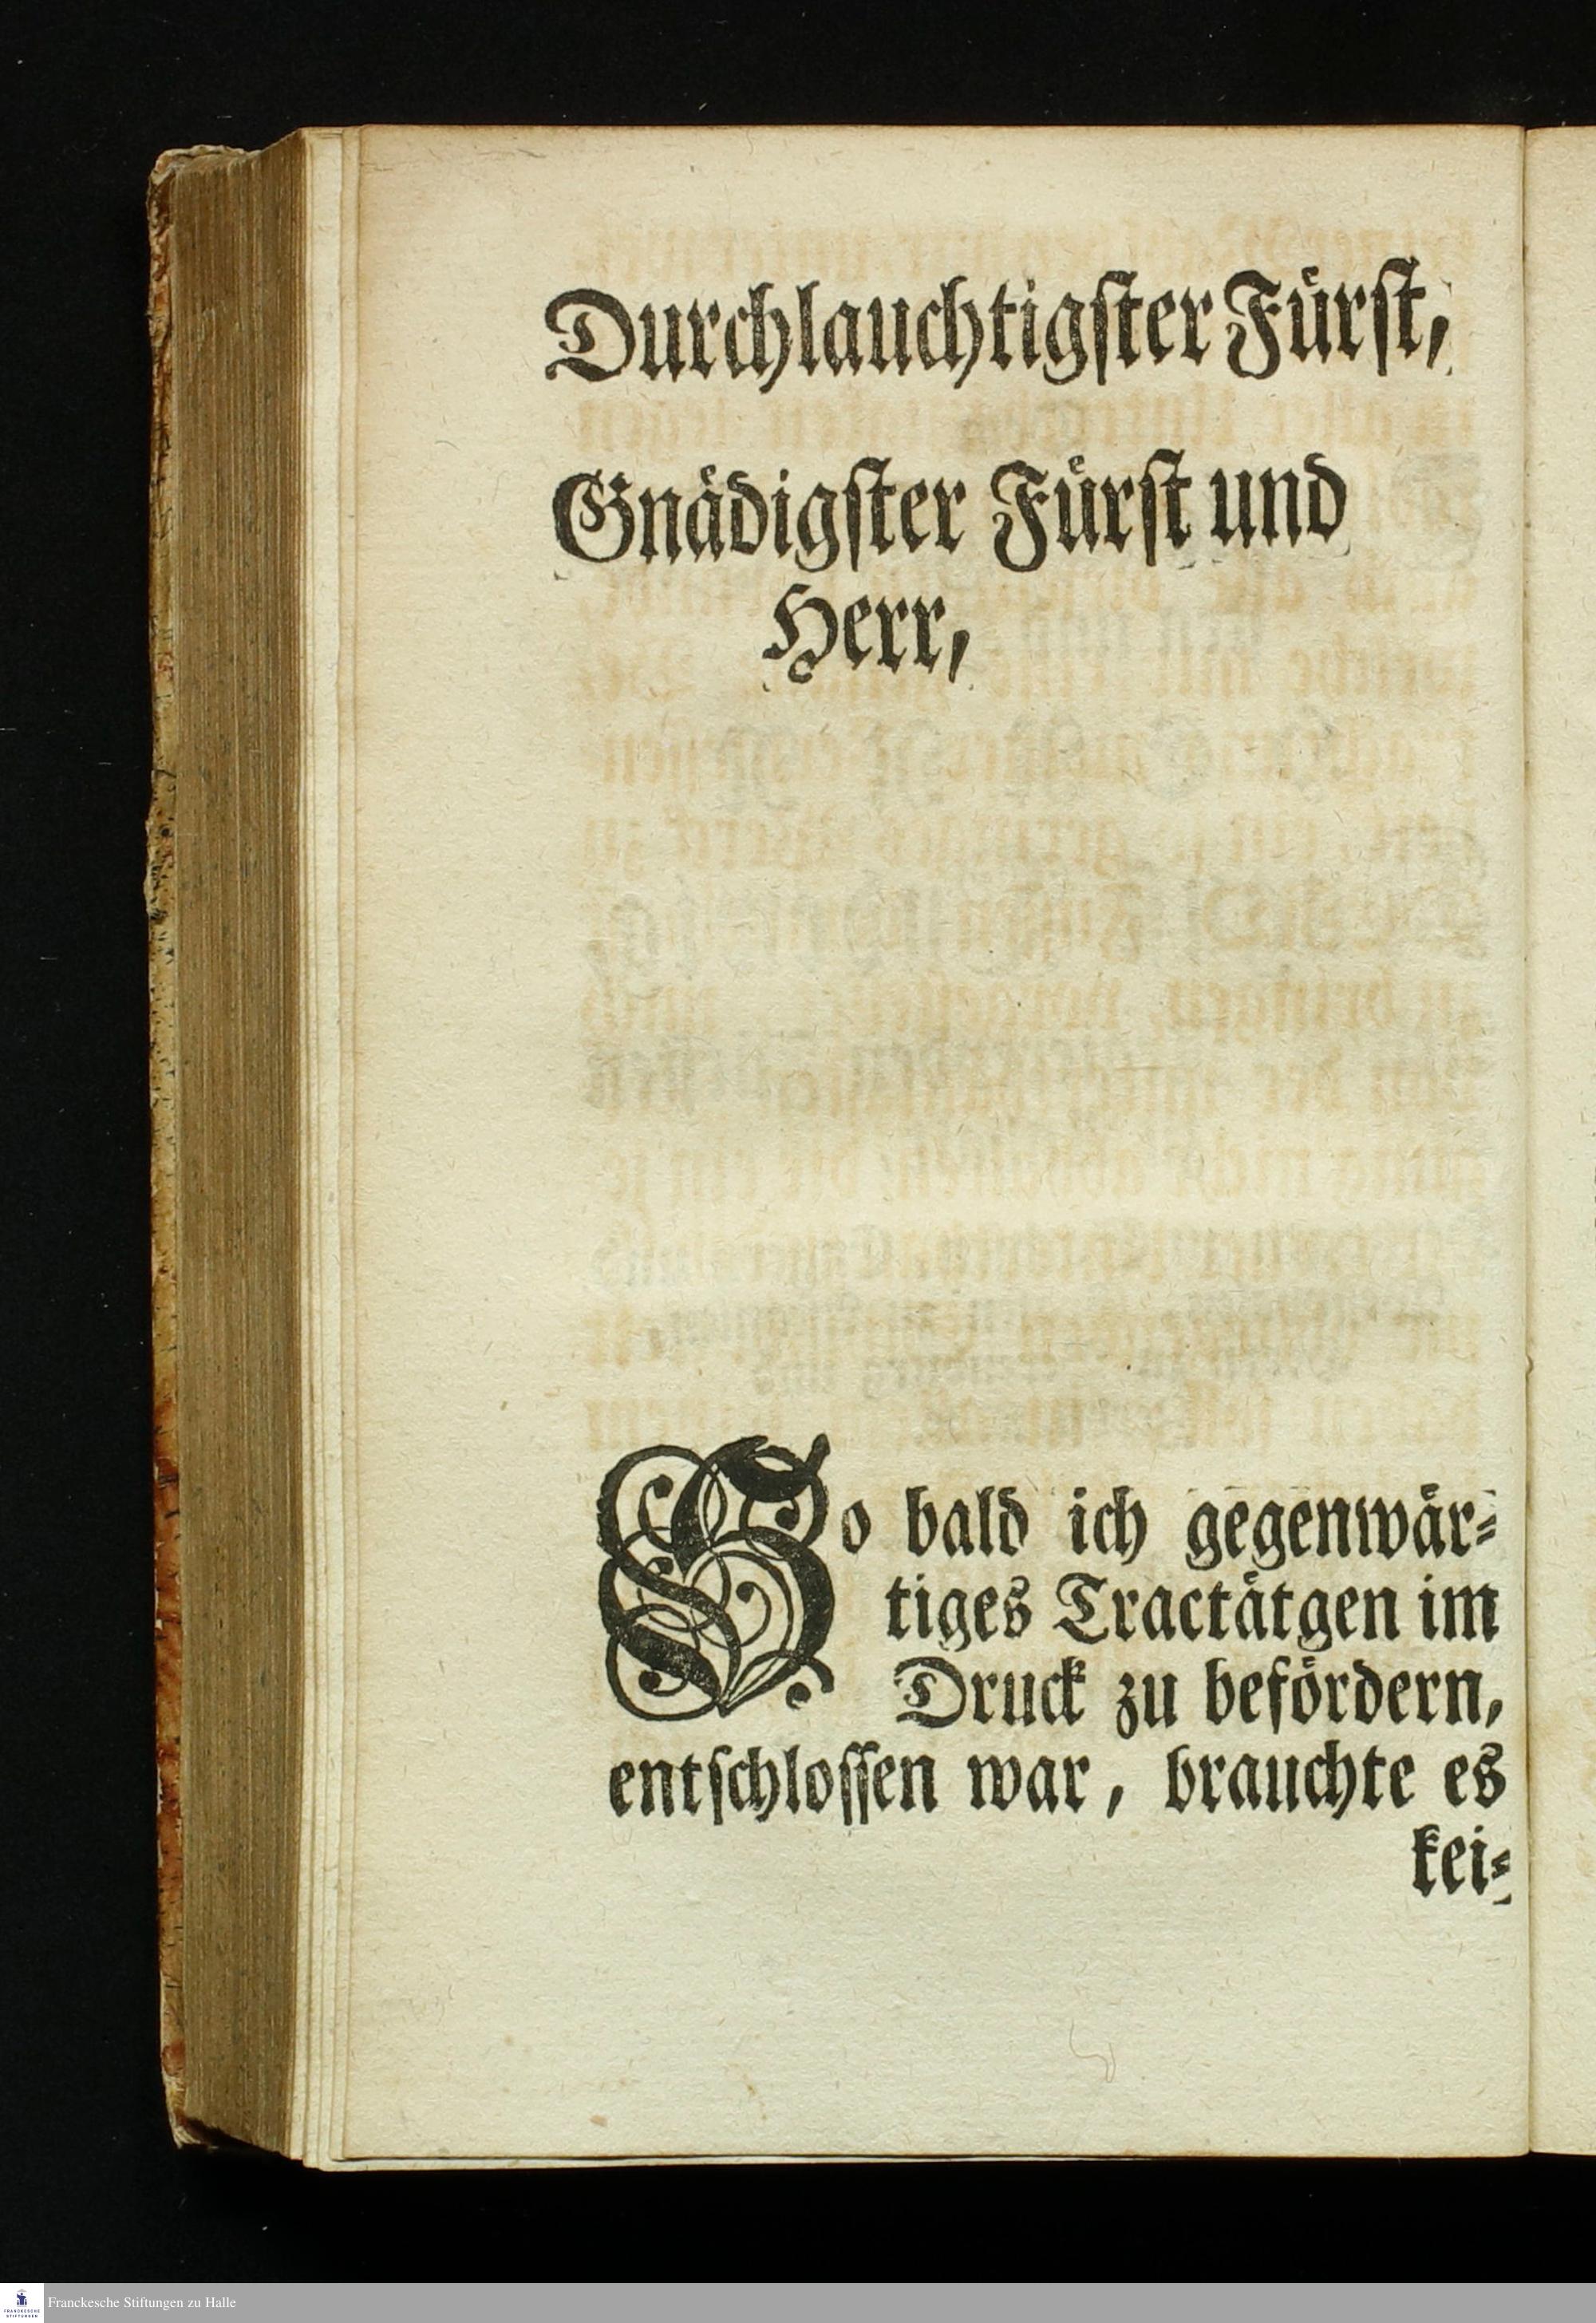 Durchlauchtigſter Fürſt,
Gnädigſter Fürſt und
Herr,
So bald ich gegenwär⸗
tiges Tractätgen im
Druck zu befördern,
entſchloſſen war, brauchte es
kei⸗
FRANCKESCHE
STIFTUNGEN
Franckesche Stiftungen zu Halle